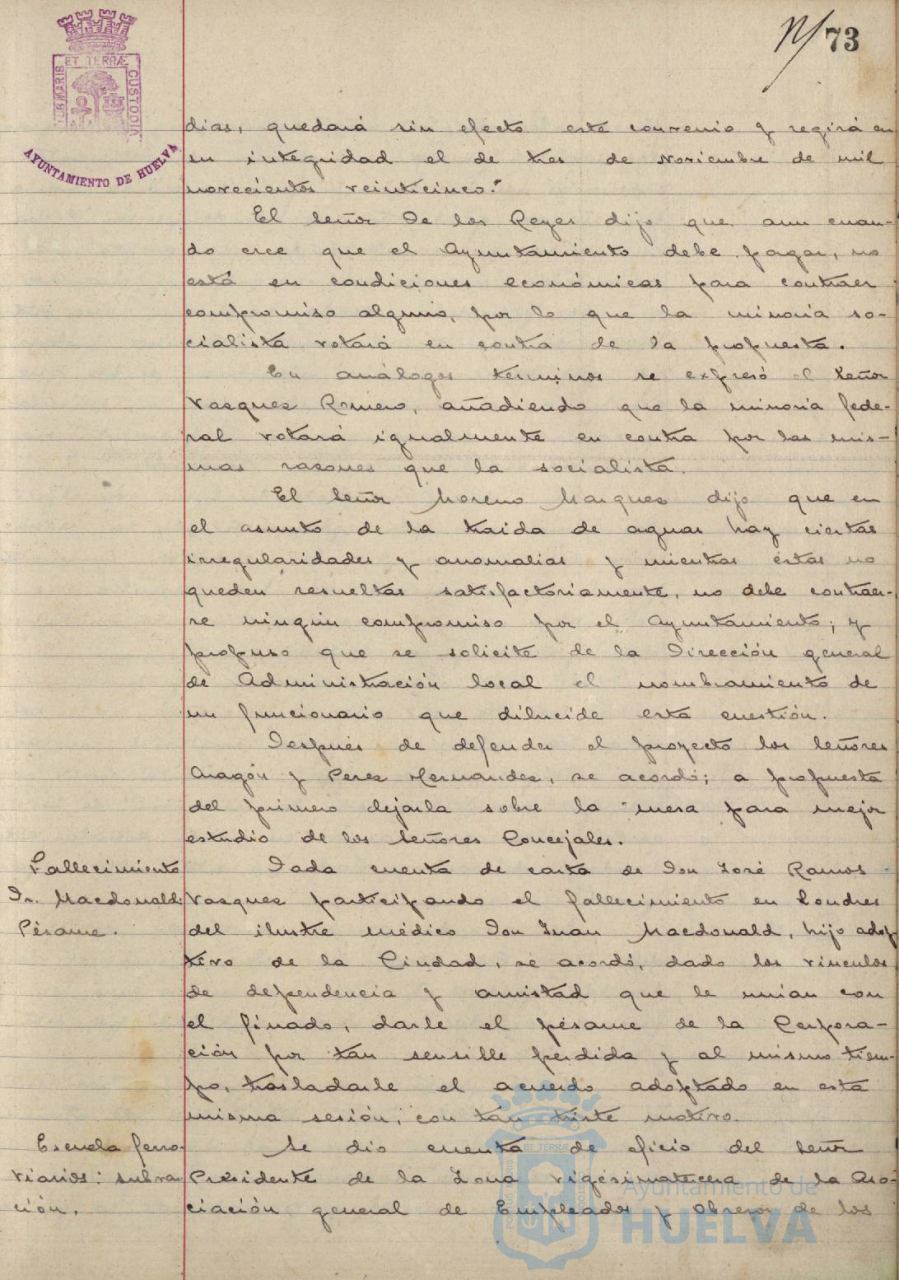 73
PORTUS MARIS ET TERRÆ CUSTODIA
AYUNTAMIENTO DE HUELVA
dias, quedará sin efecto este convenio y regirá en
su integridad el de tres de Noviembre de mil
novecientos veinticinco."
El Señor De los Reyes dijo que aun cuan-
do cree que el Ayuntamiento debe pagar, no
está en condiciones económicas para contraer
compromiso alguno, por lo que la minoria so-
cialista votará en contra de la propuesta.
En análogos términos se expresó el Señor
Vasques Romero, añadiendo que la minoria fede-
ral votará igualmente en contra por las mis-
mas razones que la socialista.
El Señor Moreno Marques dijo que en
el asunto de la traida de aguas hay ciertas
irregularidades y anomalias y mientras éstas no
queden resueltas satisfactoriamente, no debe contraer-
se ningún compromiso por el Ayuntamiento; y
propuso que se solicite de la Dirección general
de Administración local el nombramiento de
un funcionario que dilucide esta cuestión.
Después de defender el proyecto los Señores
Aragón y Peres Hernandes, se acordó; a propuesta
del primero dejarla sobre la mesa para mejor
estudio de los Señores Concejales.
Fallecimiento
Dr. Macdonald:
Pésame.
Dada cuenta de carta de Don José Ramos
Vasques participando el fallecimiento en Londres
del ilustre médico Don Juan Macdonald, hijo adop
tivo de la Ciudad, se acordó, dado los vinculos
de dependencia y amistad que le unian con
el finado, darle el pésame de la Corpora-
ción por tan sensible perdida y al mismo tiem-
po, trasladarle el acuerdo adoptado en esta
misma sesión, con tan triste motivo.
Escuela ferro-
viarios: subven
ción.
Se dio cuenta de oficio del Señor
Presidente de la Zona vigésimatercera de la Aso-
ciación general de Empleados y Obreros de los
Ayuntamiento de
HUELVA